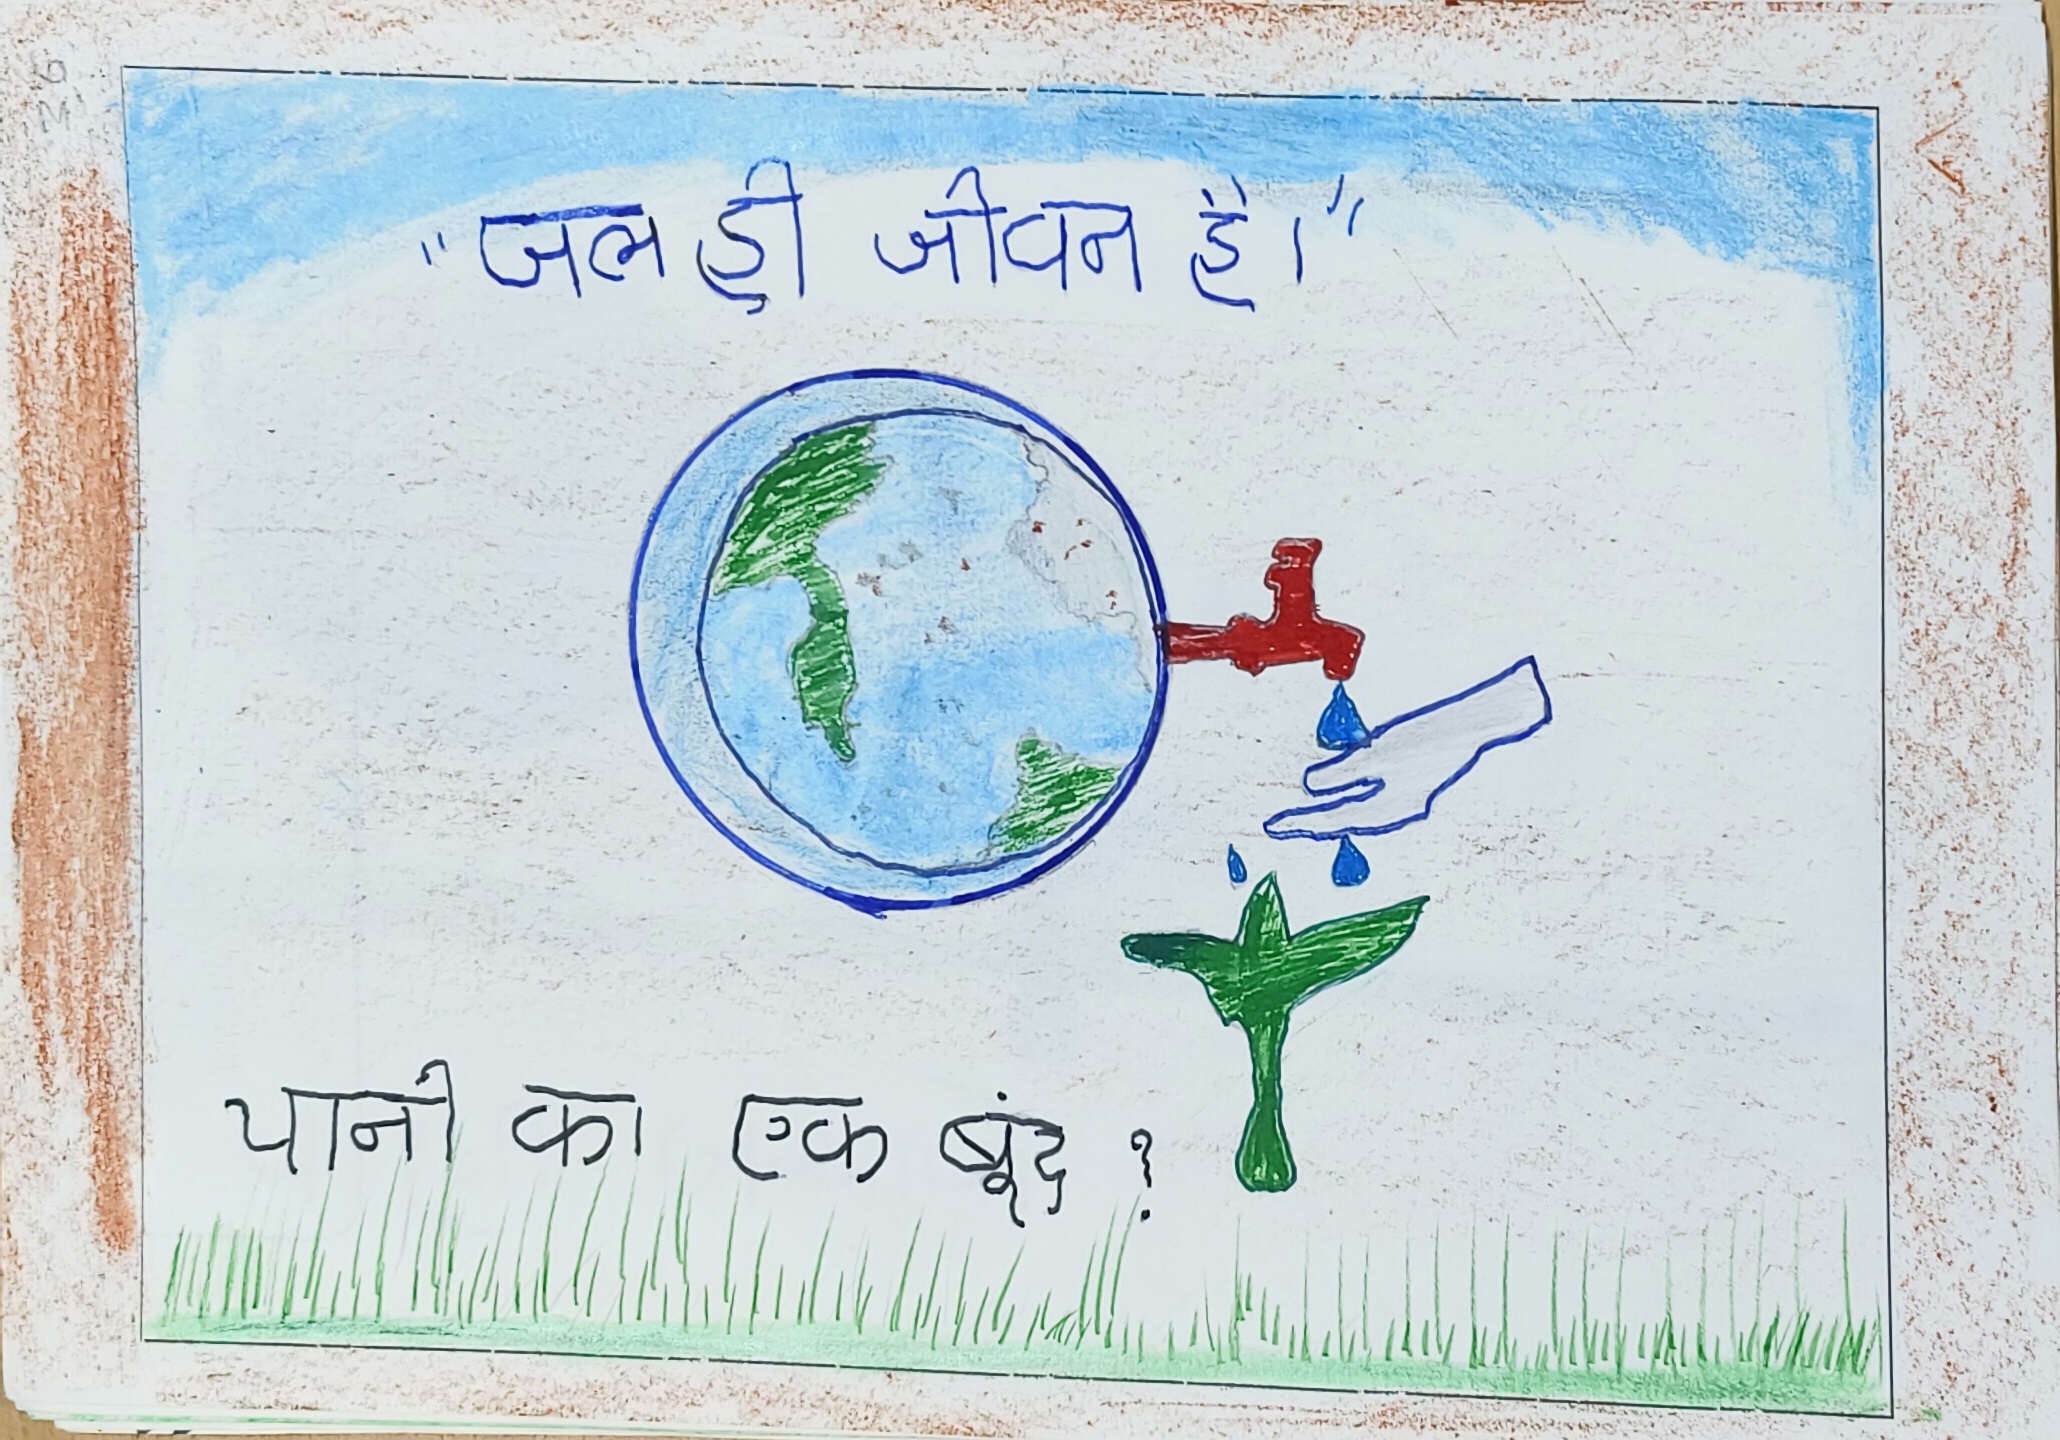 "जल ही जीवन है।"
पानी का एक बूंद ?